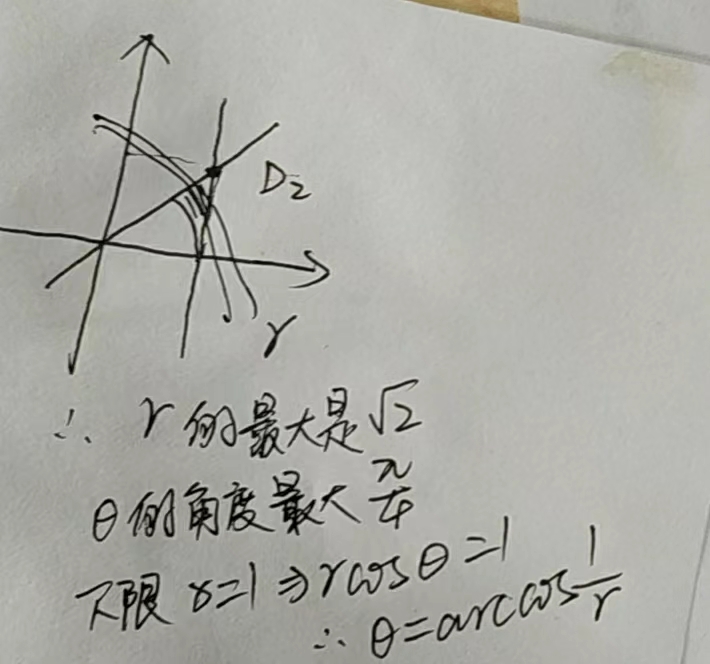 D₂
r
∴ r的最大是√2
θ的角度最大 π/4
下限 x=1 ⇒ rcosθ=1
∴ θ=arccos 1/r